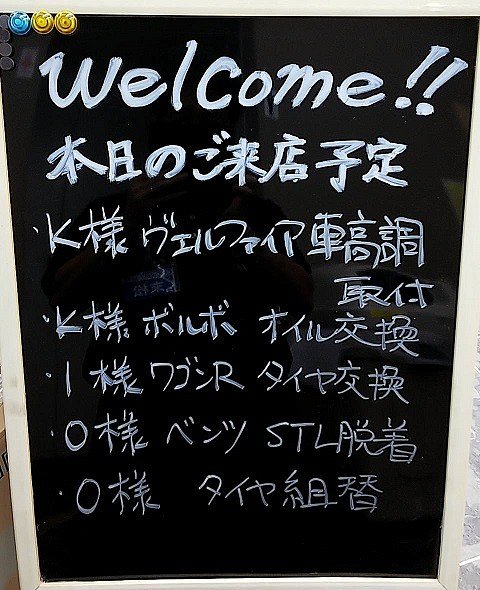 Welcome!!
本日のご来店予定
・K様 ヴェルファイア 車高調
取付
・K様 ボルボ オイル交換
・I様 ワゴンR タイヤ交換
・O様 ベンツ STL脱着
・O様 タイヤ組替